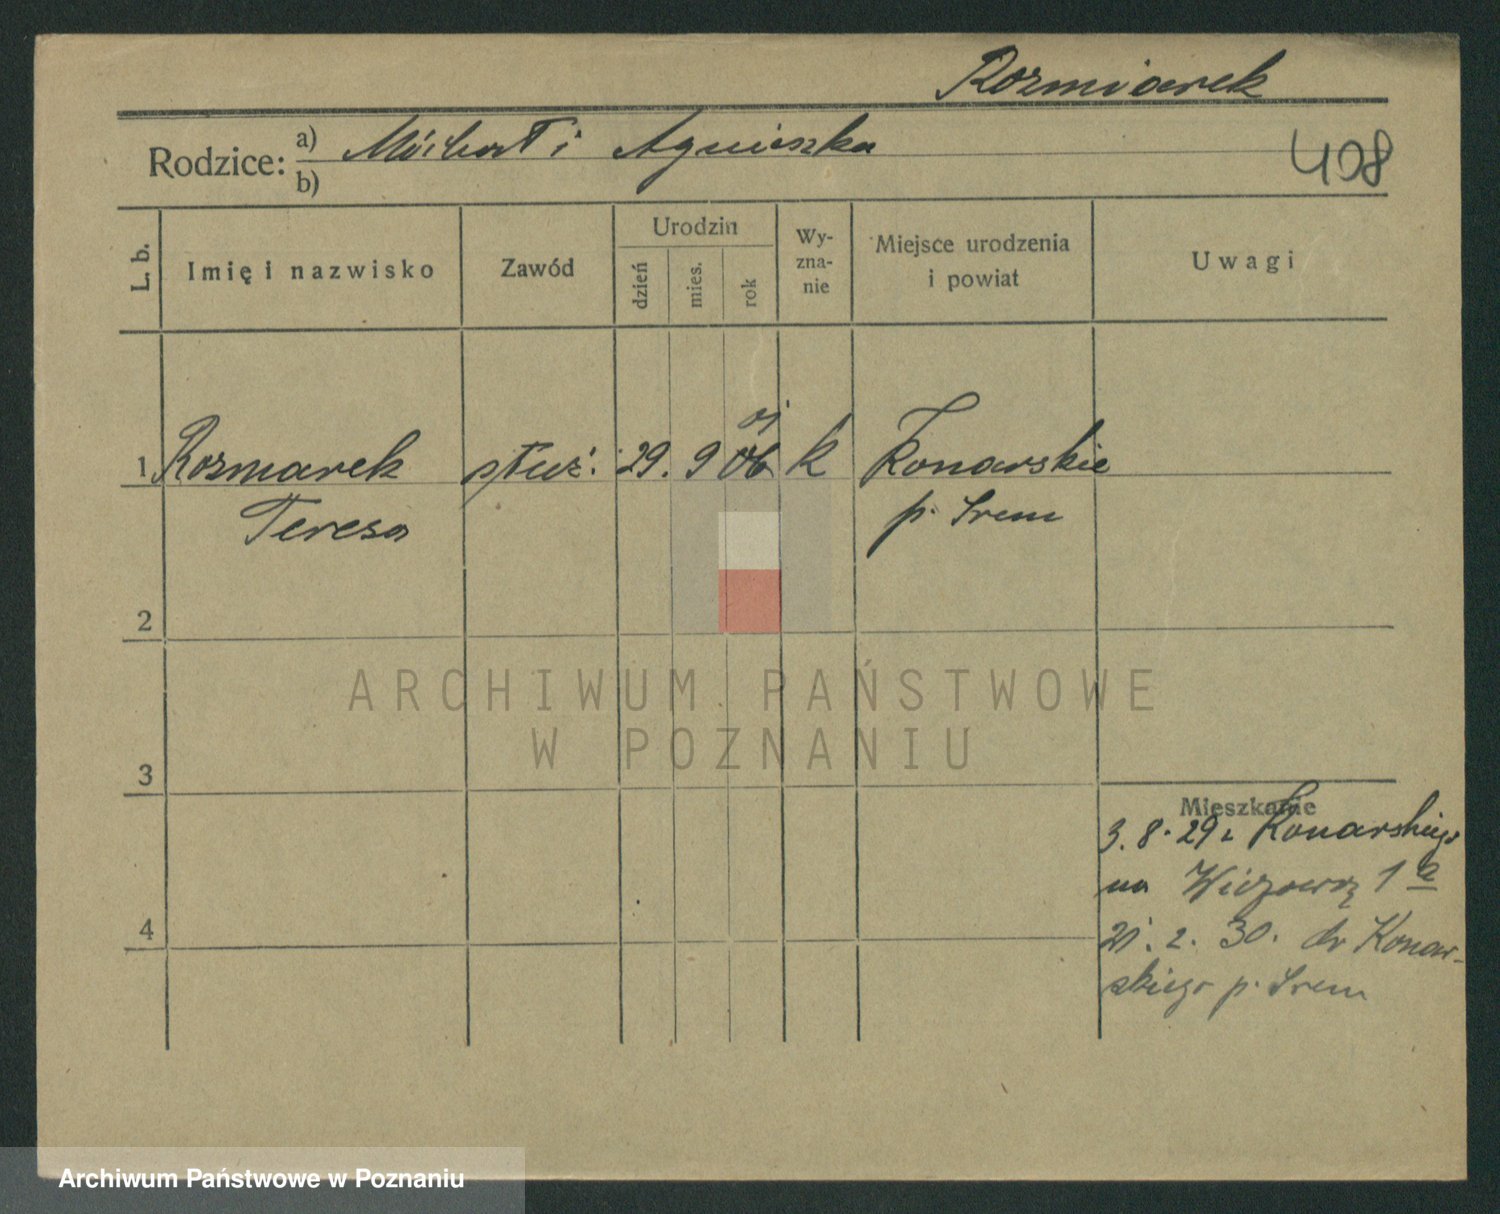 Rozmiarek
408
Rodzice: a) Michał i Agnieszka
b)
L. b. Imię i nazwisko Zawód Urodzin dzień mies. rok Wyznanie Miejsce urodzenia i powiat Uwagi
1 Rozmarek służ. 29. 9 06 k Konarskie
Teresa p. Śrem
2
ARCHIWUM PAŃSTWOWE
W POZNANIU
3
Mieszkanie
3. 8. 29 z Konarskiego
na 1 a
4
21. 2. 30. do Konar-
skiego p. Śrem
Archiwum Państwowe w Poznaniu